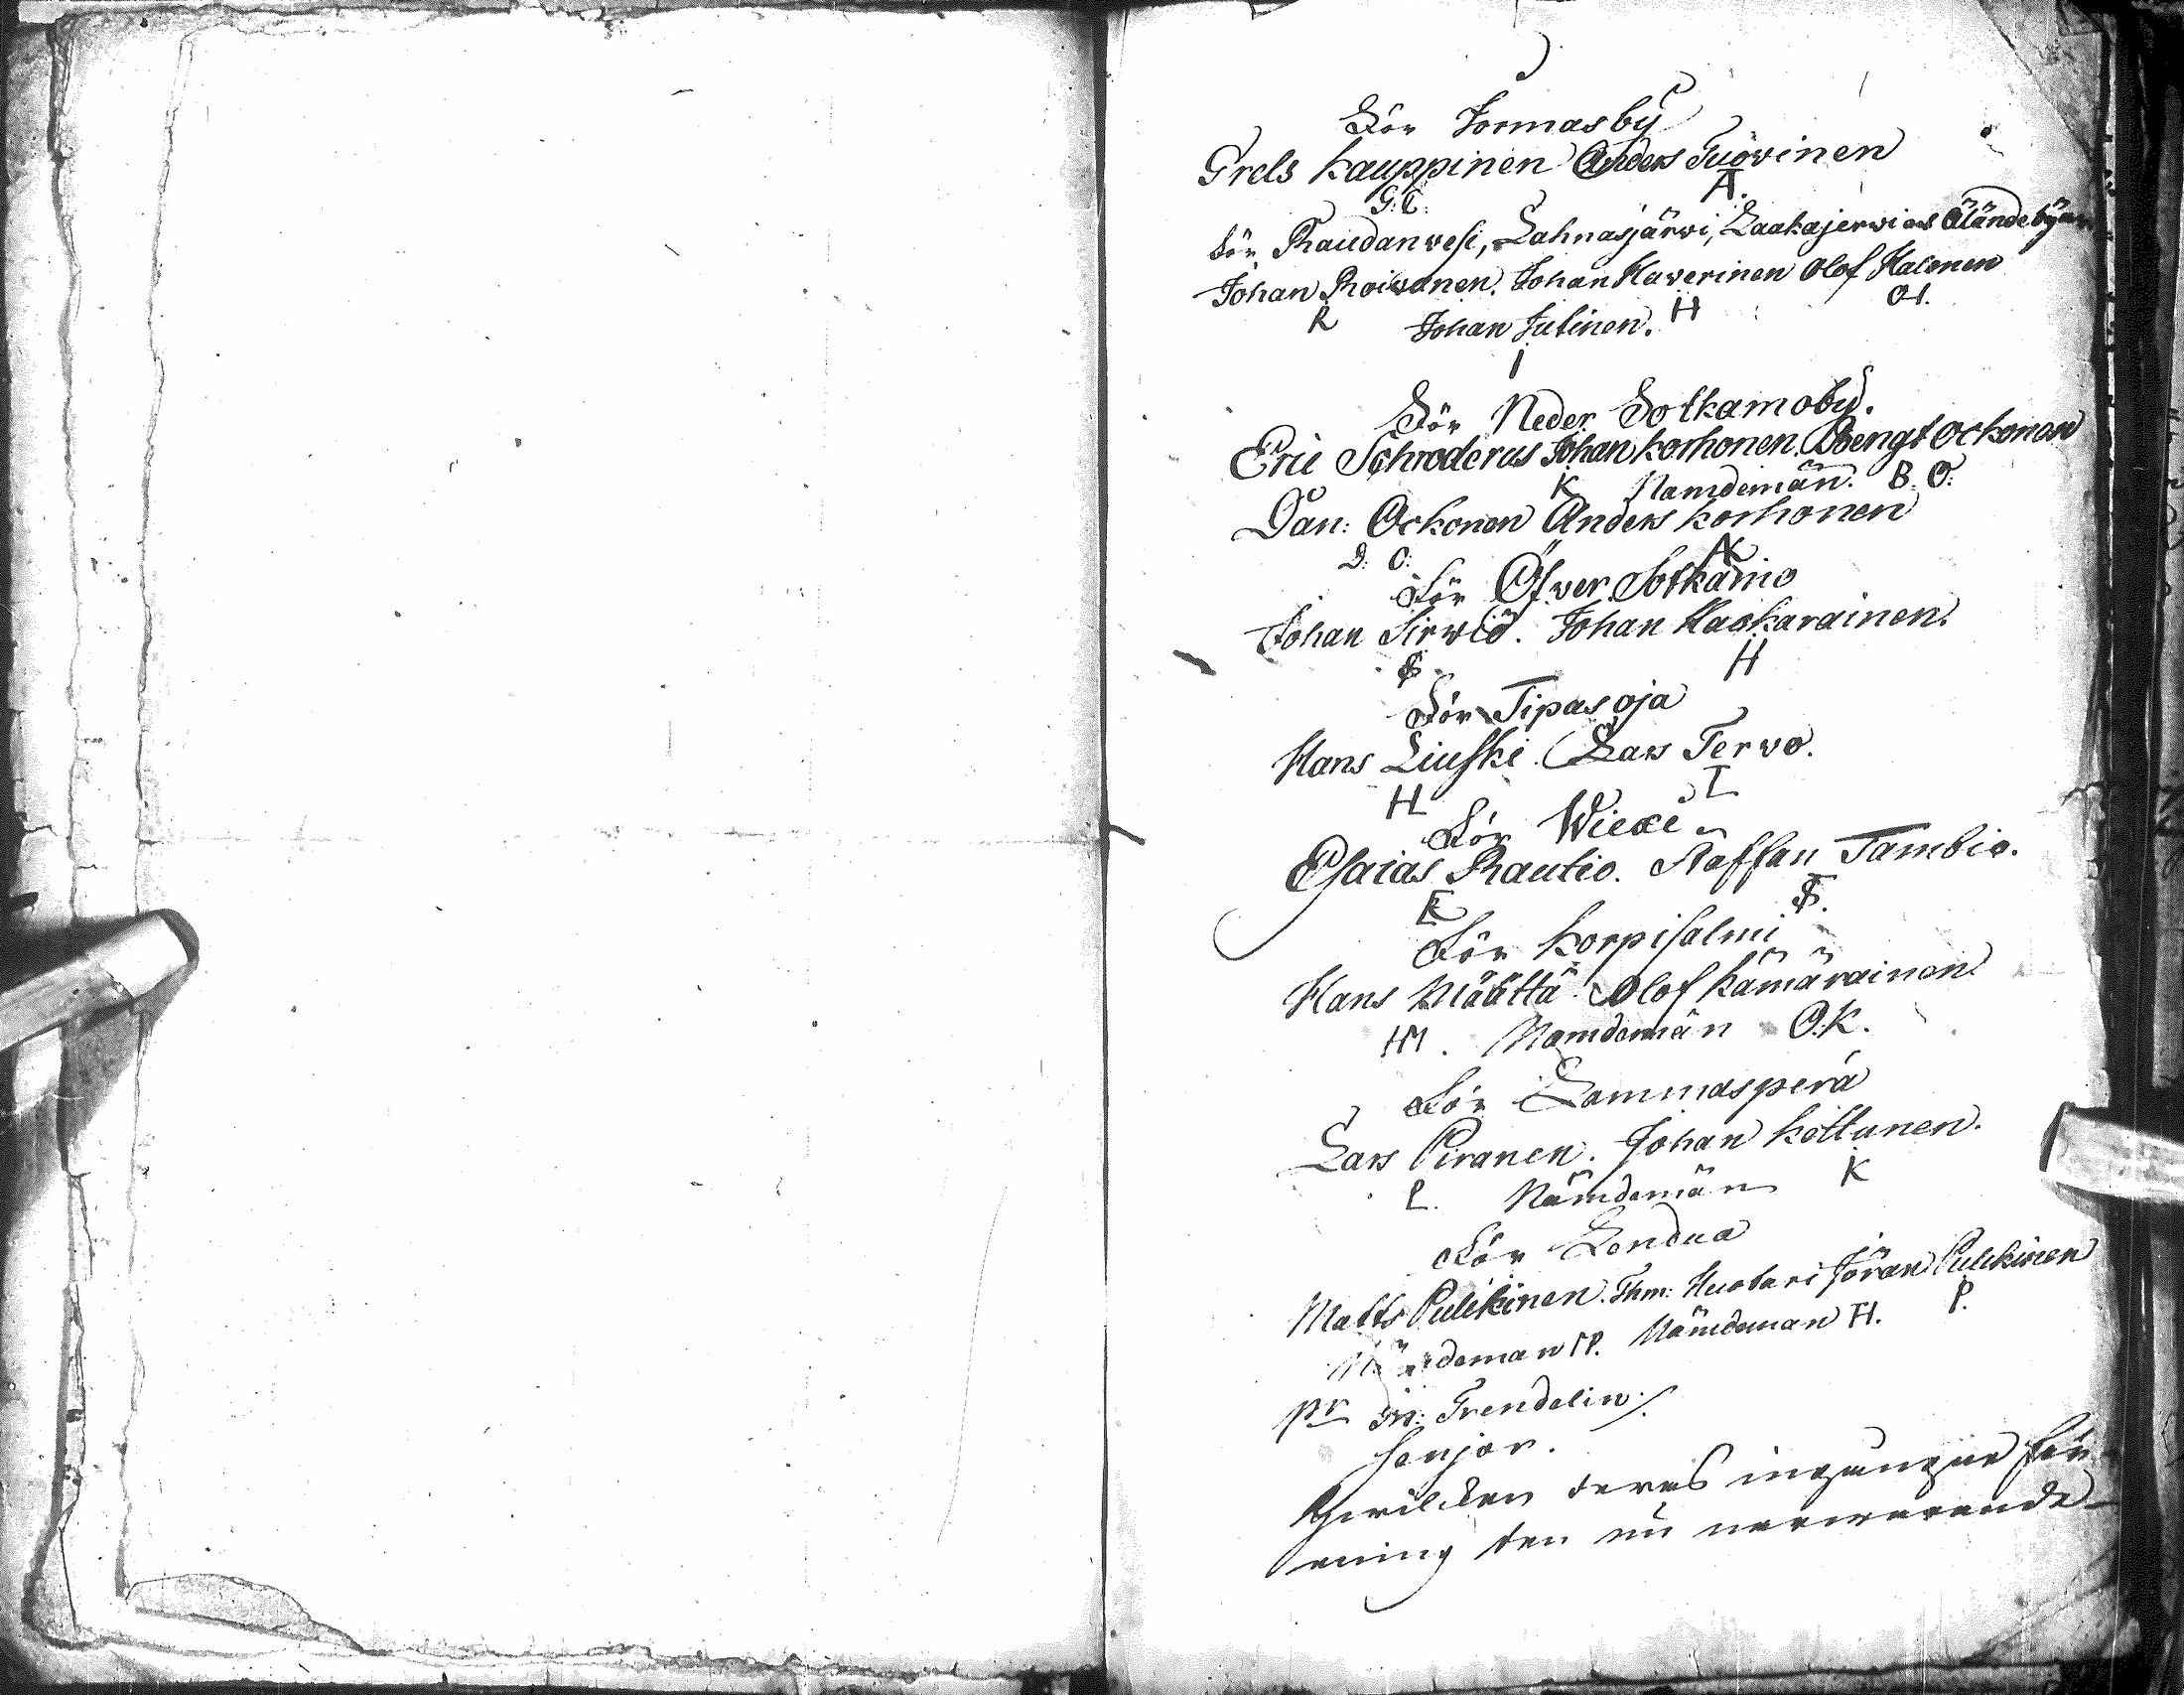 För Jormasby
Grels Kauppinen Anders Tuovinen
G:C: A.
för Raudanvesi, Lahnasjärvi, Laakajerwi och Alände byar
Johan Roivanen. Johan Haverinen Olof Halonen
R H OH.
Johan Jutinen.
I
För Neder Sotkamoby.
Eric Schroderus Johan Korhonen. Bengt Ockonen
K Nämdemän. B. O.
Dan: Ockonen Anders Korhonen
D: O: AK
För Öfver Sotkamo
Johan Sirwiö. Johan Haakarainen.
S H
För Tipasoja
Hans Liuski. Lars Tervo.
HL T
För Wiexi
Esaias Rautio. Staffan Tambio.
ER ST.
För Korpisalmi
Hans Määttä. Olof Kämärainen.
HM. Nämdemän O.K.
För Lammasperä
Lars Piranen. Johan Kettunen.
P. Nämdemän K
För Lendua
Matts Pulkinen. Thm: Huotari Jöran Pulkinen
Nämdeman P. Nämdeman H. P.
pr Trendelin/.
senjor.
Hvilcken deras ingångne för-
ening den nu närwarande